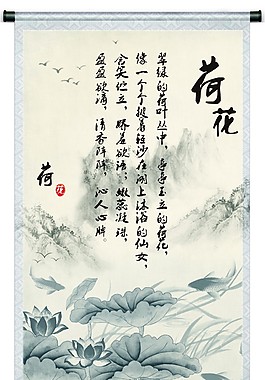 荷花
翠绿的荷叶丛中，亭亭玉立的荷花，
像一个个披着轻沙在湖上沐浴的仙女，
含笑伫立，娇羞欲语；嫩蕊凝珠，
盈盈欲滴，清香阵阵，沁人心脾。
荷花